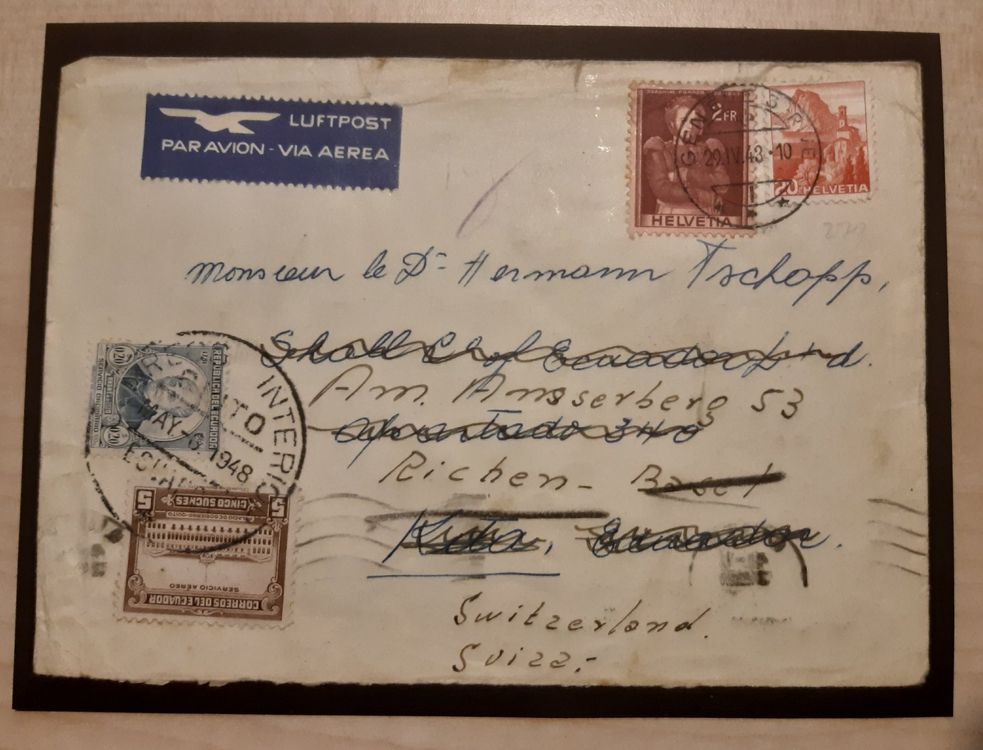 LUFTPOST
PAR AVION - VIA AEREA
2 FR
HELVETIA
20 HELVETIA
29.IV.48-10
Monsieur le Dr Hermann Tschopp,
Shell C of Ecuador Ltd.
Am. Amsserberg 53
Apartado 340
Richen - Basel
Ecuador.
Switzerland.
Suiza.-
REPUBLICA DEL ECUADOR
020
020
020
INTERIOR
MAY - 1948
5 CINCO SUCRES 5
PALACIO DE GOBIERNO-QUITO
SERVICIO AEREO
CORREOS DEL ECUADOR